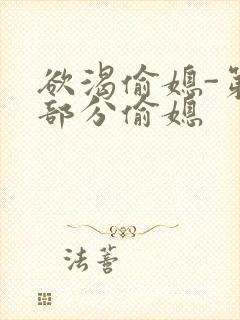 欲渴偷媳-第
部分偷媳
法蓍